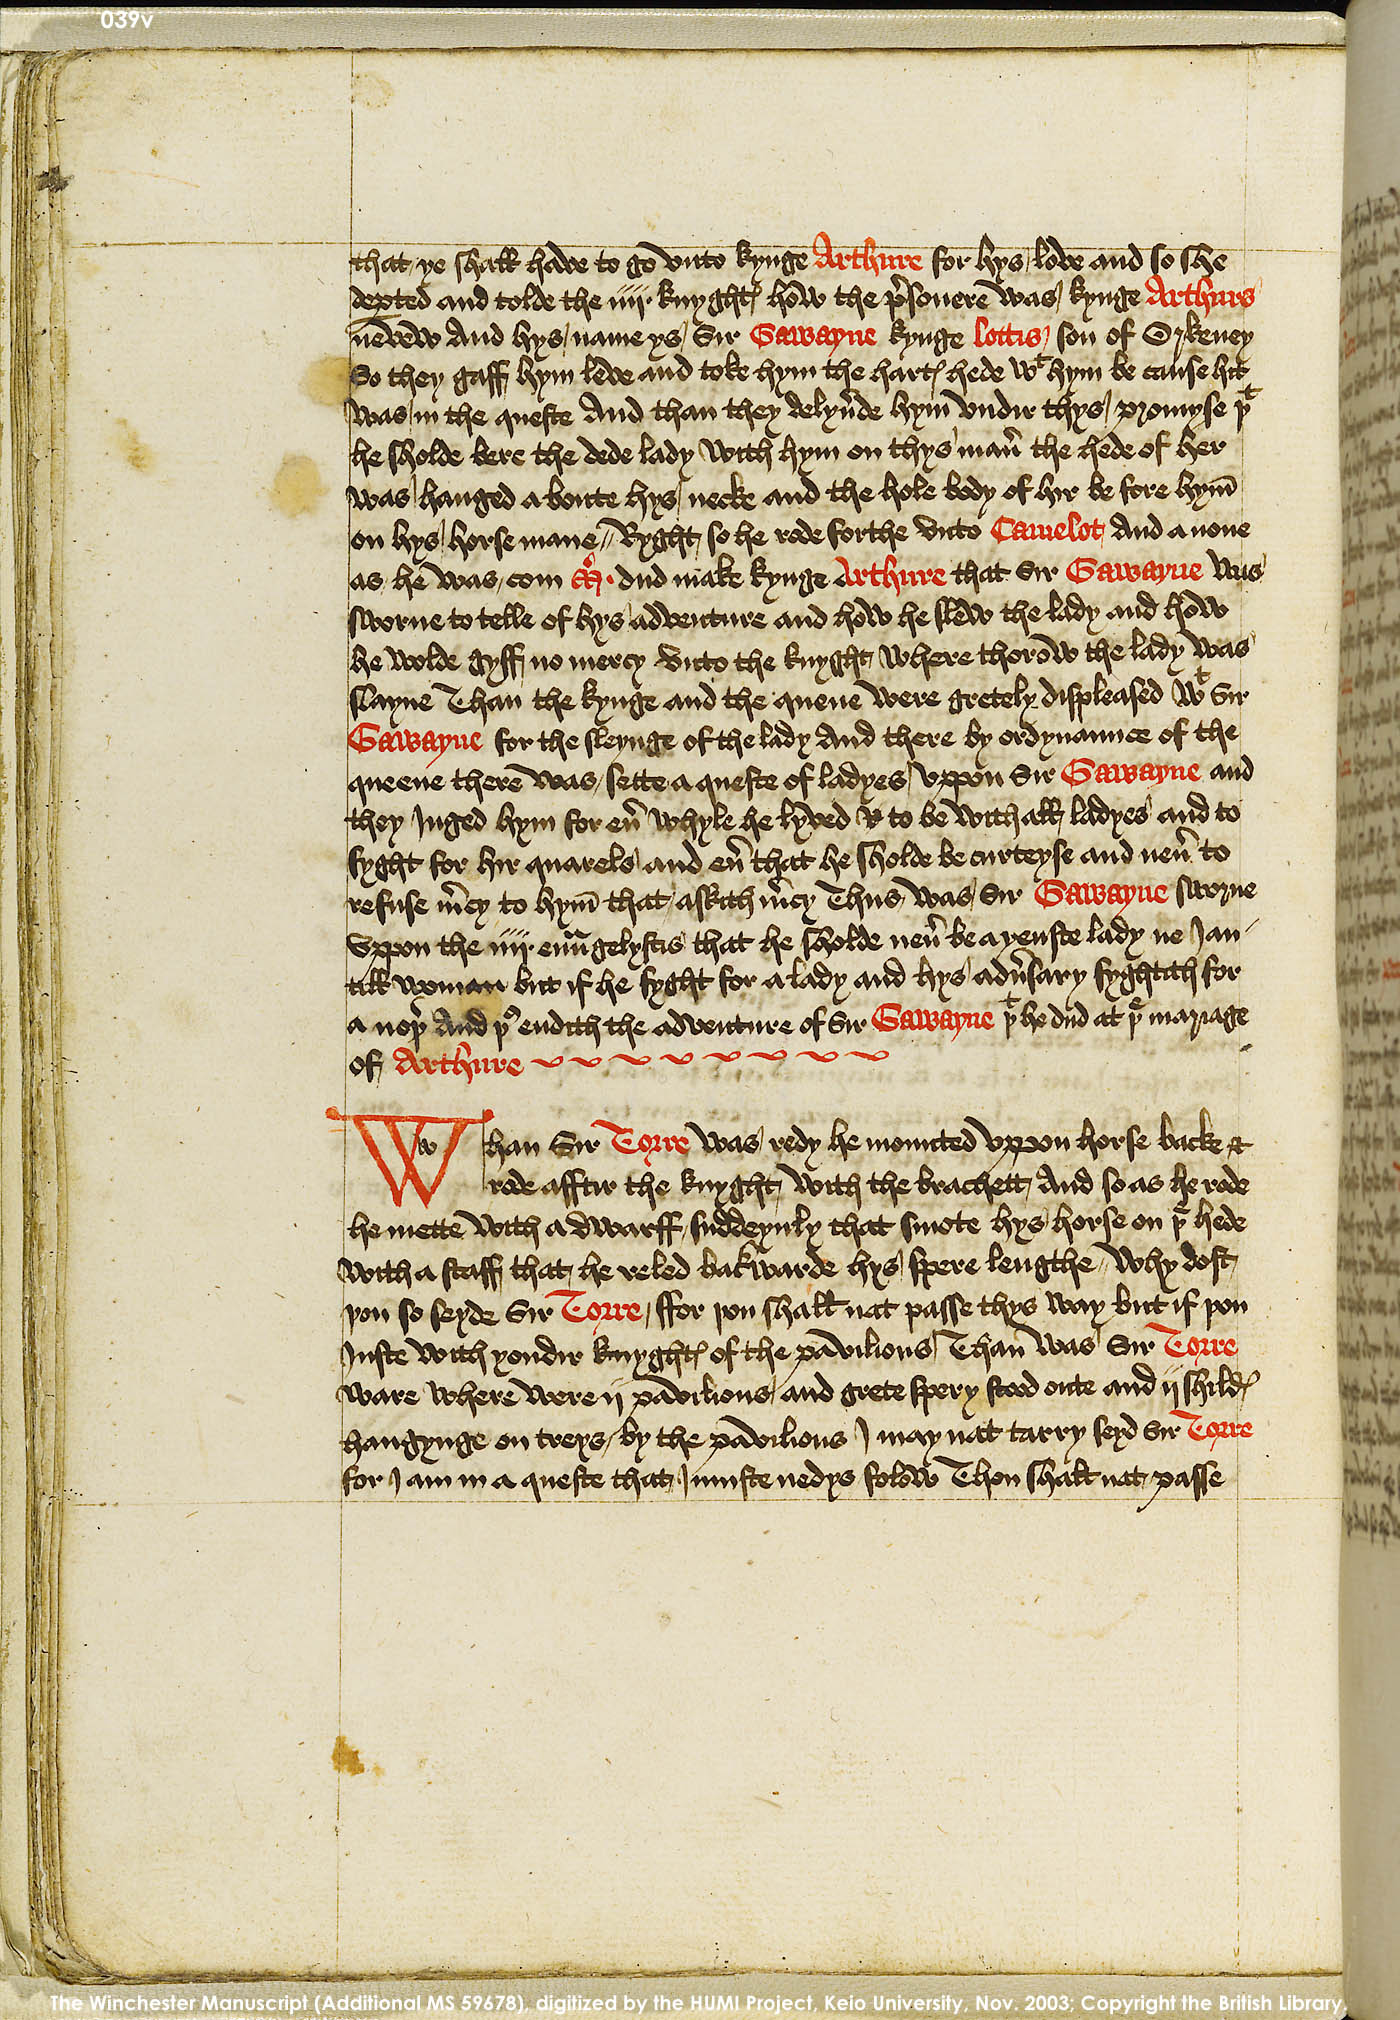 039v
that ye shall have to go vnto kynge Arthure for hys love and so she
depted and tolde the iiij knyghtꝭ how the p͛sonere was kynge Arthurs
nevew And hys name ys Sir Gawayne kynge lottis son of Orkeney
So they gaff hym leve and toke hym the hartꝭ hede wᵗ hym be cause hit
was in the queste And than they delyu͛de hym vndir thys promyse þᵗ
he sholde bere the dede lady with hym on thys man͛ the hede of her
was hanged a boute hys necke and the hole body of hir be fore hym̄
on hys horse mane // Ryght so he rode forthe vnto Camelot And anone
as he was com M͛. dud make kynge Arthure that Sir Gawayne was
sworne to telle of hys adventure and how he slew the lady and how
he wolde gyff no mercy vnto the knyght where thorow the lady was
slayne Than the kynge and the quene were gretely displeased wᵗ Sir
Gawayne for the sleynge of the lady And there by ordynaunce of the
queene there was sette a queste of ladyes vppon Sir Gawayne and
they Juged hym for eu͛ whyle he lyved to be with all ladyes and to
fyght for hir quarels and eu͛ that he sholde be curteyse and neu͛ to
refuse m͛cy to hym̄ that askith m͛cy Thus was Sir Gawayne sworne
vppon the iiij euūgelystis that he sholde neu͛ be ayenste lady ne Jan-
till woman but if he fyght for a lady and hys adu͛sary fyghtith for
a noþ͛ And þ⁹ endith the adventure of Sir Gawayne þᵗ he dud at þᵉ mariage
of Arthure
W w han Sir Torre was redy he mounted vppon horse backe &
rode afftir the knyght with the brachett And so as he rode
he mette with a dwarff suddeynly that smote hys horse on þᵉ hede
with a staff that he reled bakwarde hys spere lengthe Why dost
þou so seyde Sir Torre / ffor þou shalt nat passe thys way but if þou
Juste with yondir knyghtꝭ of the pavilions Than was Sir Torre
ware where were ij pavilions and grete sperꝭ stood oute and ij shildꝭ
hangynge on treys by the pavilions J may nat tarry seyd Sir Torre
for J am in a queste that J muste nedys folow Thou shalt nat passe
The Winchester Manuscript (Additional MS 59678), digitized by the HUMI Project, Keio University, Nov. 2003; Copyright the British Library,